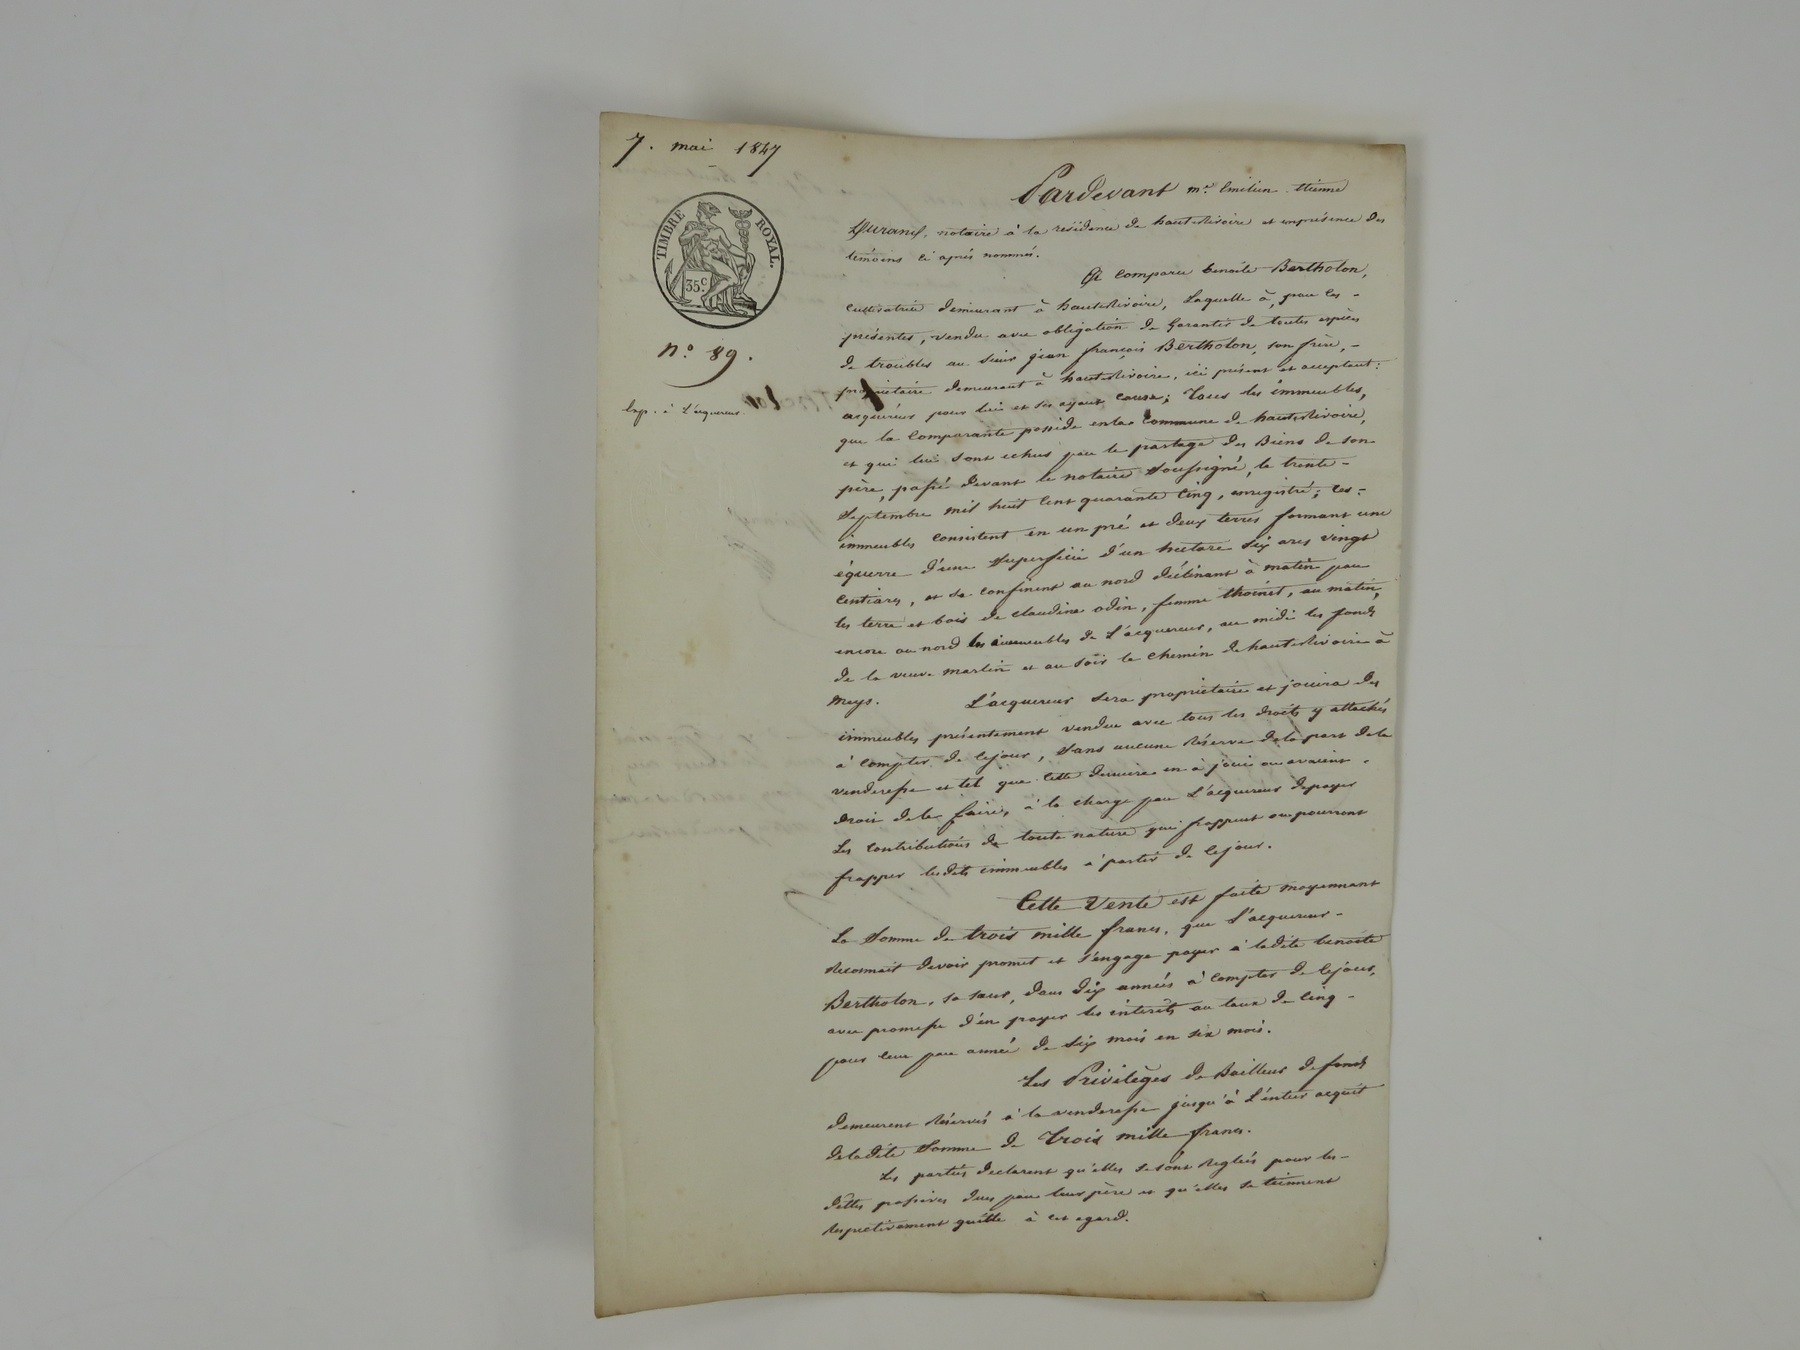 7. mai 1847
TIMBRE ROYAL.
35.c
n.o 89.
Exp. à L'acquereur
Pardevant m.e Emilien Etienne
Durand, notaire à la résidence de hauterivoire et enprésence des
témoins ci après nommés.
A comparu benoite Bertholon,
cultivatrice demeurant à hauterivoire, Laquelle à, par ces -
présentes, vendu avec obligation de garantir de toutes espèces
de troubles au sieur jean françois Bertholon, son frère, -
propriétaire demeurant à hauterivoire, ici présent et acceptant:
acquéreur pour lui et ses ayant cause; Tous les immeubles,
que la Comparante possède enla Commune de hauterivoire,
et qui lui sont echus par le partage des Biens de son
père, passé devant le notaire soussigné, le trente -
Septembre mil huit cent quarante cinq, enregistré; ces:
immeubles consistent en un pré et deux terres formant une
équerre d'une superficie d'un hectare six ares vingt
centiares, et se confinent au nord déclinant à matin par
les terre et bois de claudine odin, femme thoinet, au matin,
encore au nord les immeubles de L'acquereur, au midi les fonds
de la veuve martin et au soir le chemin de hauterivoire à
meys. L'acquereur sera propriétaire et jouira des
immeubles présentement vendu avec tous les droits y attachés
à compter de cejour, Sans aucune réserve dela part dela
venderesse et tel que cette dernière en à joui ou avaient
droit dele faire, à la charge par L'acquereur depayer
Les contributions de toute nature qui frappent oupourront
frapper lesdits immeubles à partir de cejour.
Cette Vente est faite moyennant
La Somme de trois mille francs, que L'acquereur -
Reconnait devoir promet et s'engage payer à ladite benoite
Bertholon, sa sœur, dans dix années à compter de cejour,
avec promesse d'en payer les intérêts au taux de cinq -
pour cent par année de six mois en six mois.
Les Privilèges de Bailleur de fonds
demeurent Réservés à la venderesse jusqu'à L'entier acquit
deladite Somme de Trois mille francs.
Les parties declarent qu'elles sesont Reglées pour les -
dettes passives dues par leur père et qu'elles se tiennent
Respectivement quitte à cet egard.